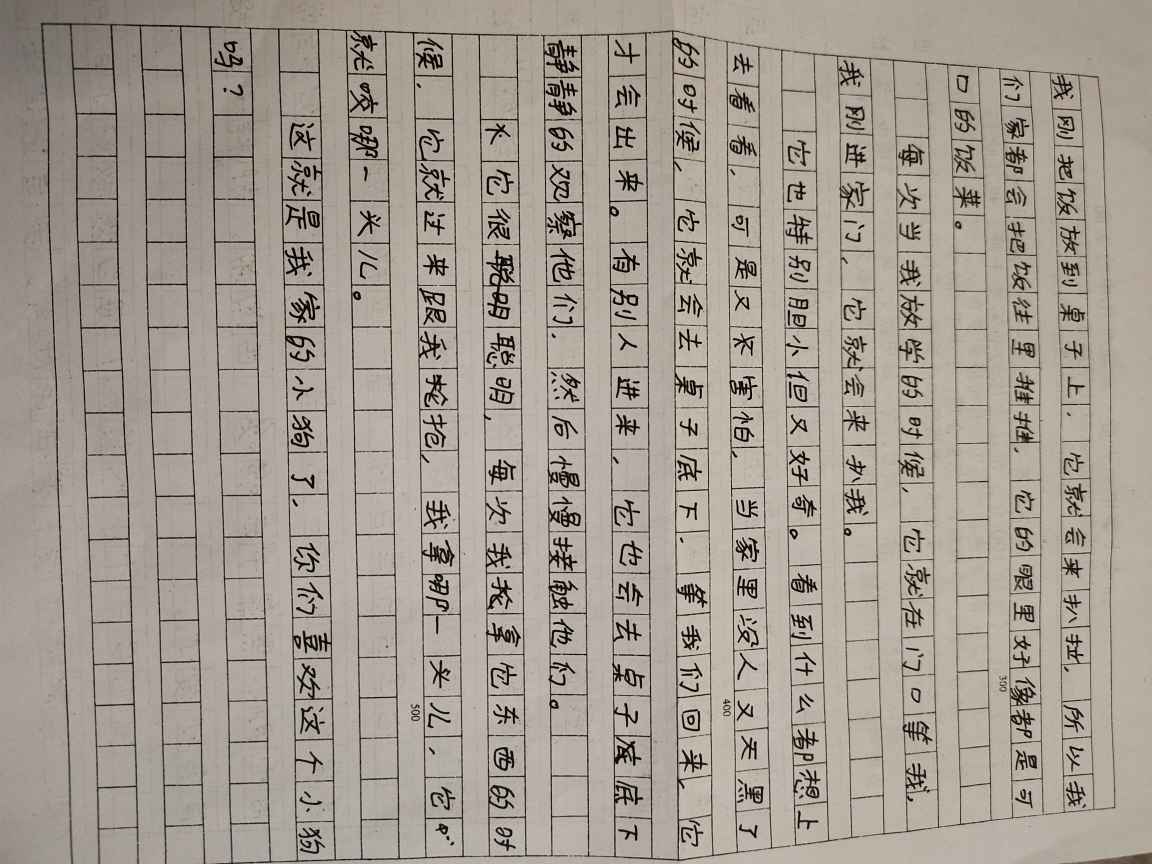 我刚把饭放到桌子上，它就会来扒拉，所以我
们家都会把饭往里推推，它的眼里好像都是可
300
口的饭菜。
每次当我放学的时候，它就在门口等我，
我刚进家门，它就会来扑我。
它也特别胆小但又好奇。看到什么都想上
去看看，可是又害怕，当家里没人又天黑了
400
的时候，它就会去桌子底下，等我们回来，它
才会出来。有别人进来，它也会去桌子底下
静静的观察他们，然后慢慢接触他们。
它很聪明，每次我拿它东西的时
候，它就过来跟我抢，我拿哪一头儿，它
500
就咬哪一头儿。
这就是我家的小狗了，你们喜欢这个小狗
吗？